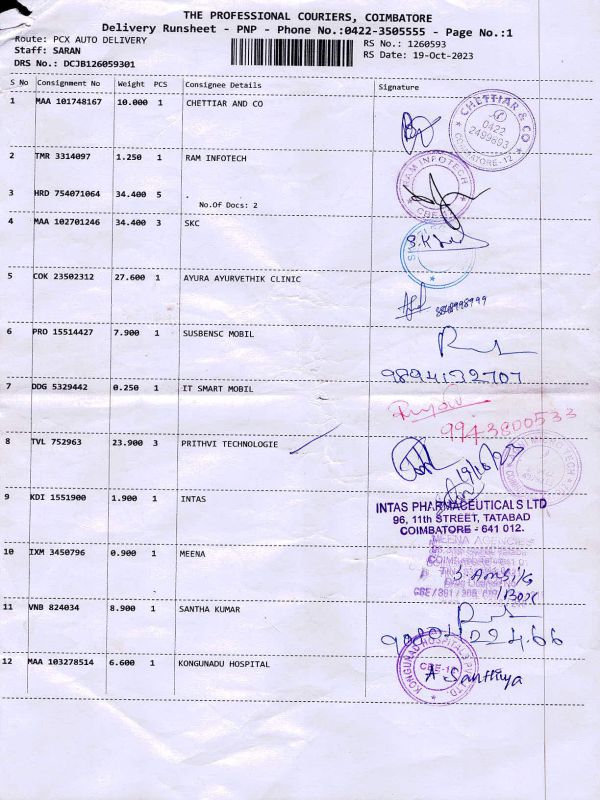 THE PROFESSIONAL COURIERS, COIMBATORE
Delivery Runsheet - PNP - Phone No.:0422-3505555 - Page No.:1
Route: PCX AUTO DELIVERY
RS No.: 1260593
Staff: SARAN
RS Date: 19-Oct-2023
DRS No.: DCJB126059301
S No Consignment No Weight PCS Consignee Details Signature
1 MAA 101748167 10.000 1 CHETTIAR AND CO
CHETTIAR & CO
0422
2499693
COIMBATORE-12
2 TMR 3314097 1.250 1 RAM INFOTECH
RAM INFOTECH
3 HRD 754071064 34.400 5 .
No.Of Docs: 2
4 MAA 102701246 34.400 3 SKC
5 COK 23502312 27.600 1 AYURA AYURVETHIK CLINIC
6 PRO 15514427 7.900 1 SUSBENSC MOBIL
9894132707
7 DDG 5329442 0.250 1 IT SMART MOBIL
9943800533
8 TVL 752963 23.900 3 PRITHVI TECHNOLOGIE
19/10/23
9 KDI 1551900 1.900 1 INTAS
INTAS PHARMACEUTICALS LTD
96, 11th STREET, TATABAD
COIMBATORE - 641 012.
10 IXM 3450796 0.900 1 MEENA
MEENA AGENCIES
1 Box
11 VNB 824034 8.900 1 SANTHA KUMAR
12 MAA 103278514 6.600 1 KONGUNADU HOSPITAL
KONGUNAD HOSPITALS PVT. LTD.
CBE-12
A Santhiya